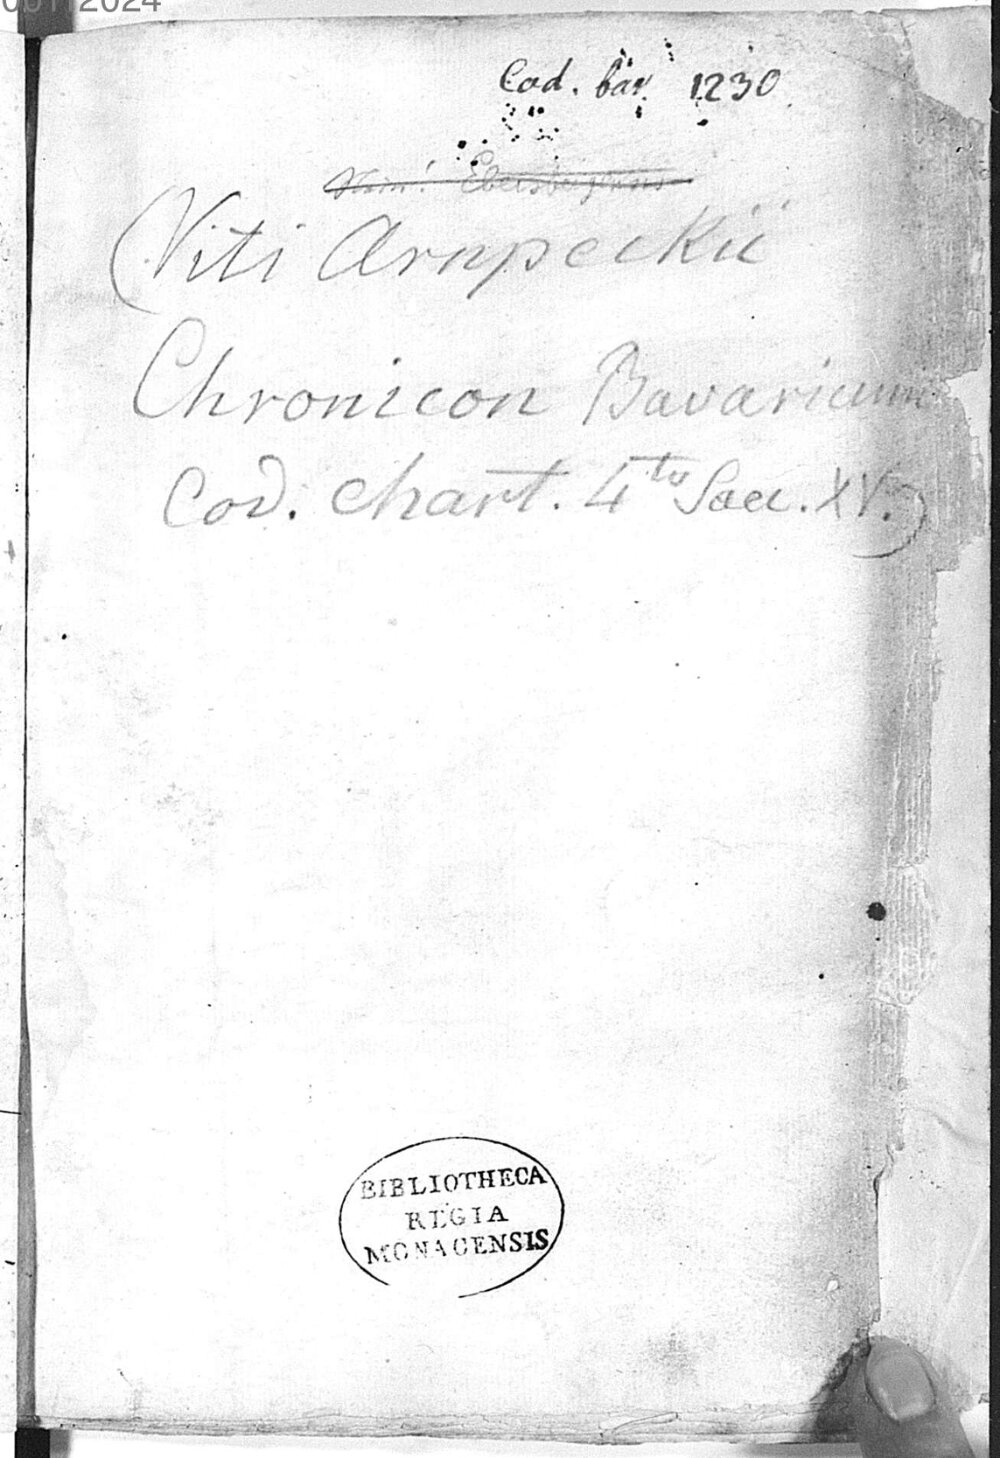 Cod. bav 1230
Ebersbergens
(Viti Arnpeckii
Chronicon Bavaricum
Cod. chart. 4to Saec. XV.)
BIBLIOTHECA
REGIA
MONACENSIS